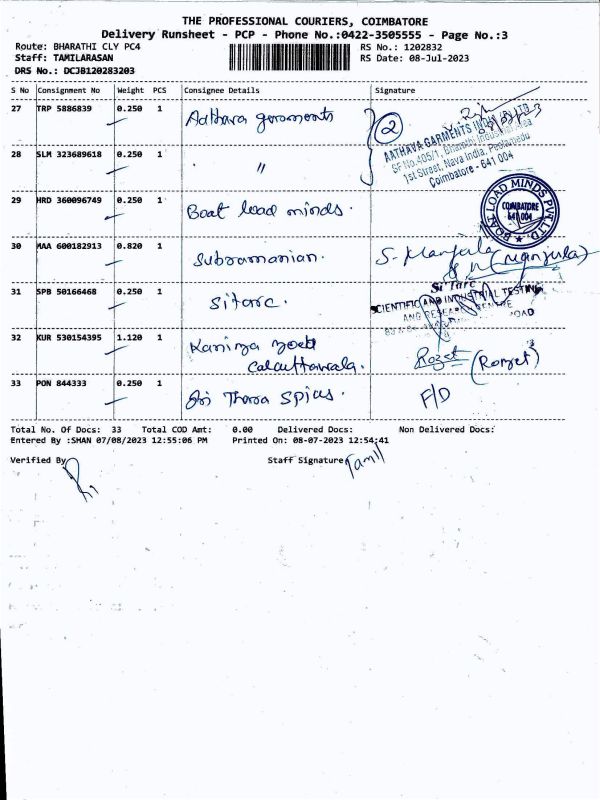 THE PROFESSIONAL COURIERS, COIMBATORE
Delivery Runsheet - PCP - Phone No.:0422-3505555 - Page No.:3
Route: BHARATHI CLY PC4 RS No.: 1202832
Staff: TAMILARASAN RS Date: 08-Jul-2023
DRS No.: DCJB120283203
S No Consignment No Weight PCS Consignee Details Signature
27 TRP 5886839 0.250 1 Aathava garments 2
AATHAVA GARMENTS INDIA (P) LTD
SF No.405/1, Bharathi Industrial Area
1st Street, Nava India, Peelamedu
Coimbatore - 641 004
28 SLM 323689618 0.250 1 " "
29 HRD 360096749 0.250 1 Boat load minds.
BOAT LOAD MINDS PVT LTD.
COIMBATORE
641 004
30 MAA 600182913 0.820 1 Subramanian. S. Manjula
(Manjula)
31 SPB 50166468 0.250 1 Sitarc.
Si'Tarc
SCIENTIFIC AND INDUSTRIAL TESTING
AND RESEARCH CENTRE
ROAD
32 KUR 530154395 1.120 1 Kaniza
Calcuttawala.
33 PON 844333 0.250 1 Sri Thara Spices. F/D
Total No. Of Docs: 33 Total COD Amt: 0.00 Delivered Docs: Non Delivered Docs:
Entered By :SHAN 07/08/2023 12:55:06 PM Printed On: 08-07-2023 12:54:41
Verified By Staff Signature Tamil